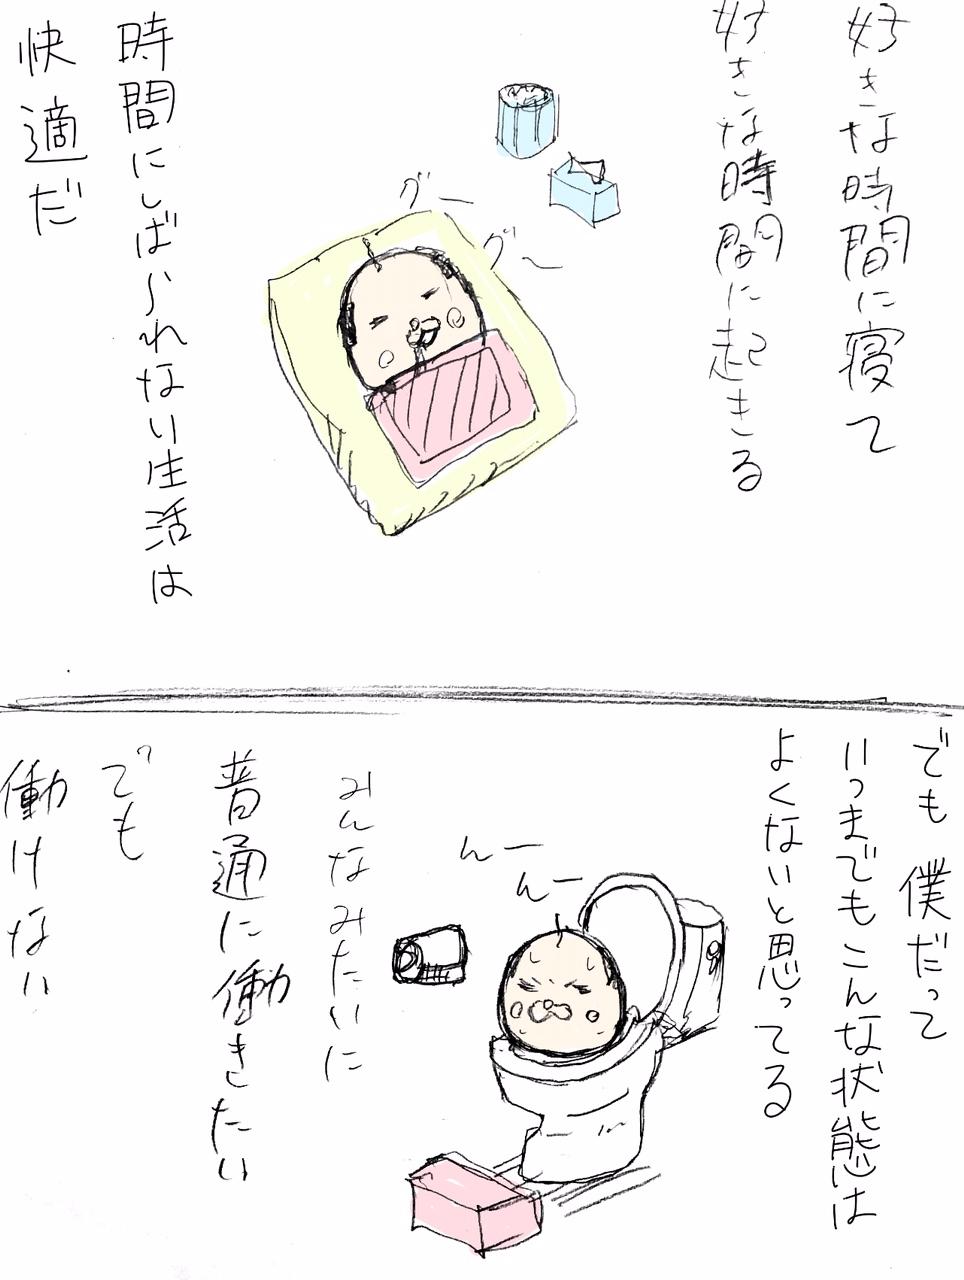 好きな時間に寝て
好きな時間に起きる
グー
グー
時間にしばられない生活は
快適だ
でも 僕だって
いつまでもこんな状態は
よくないと思ってる
んー
んー
みんなみたいに
普通に働きたい
でも
働けない